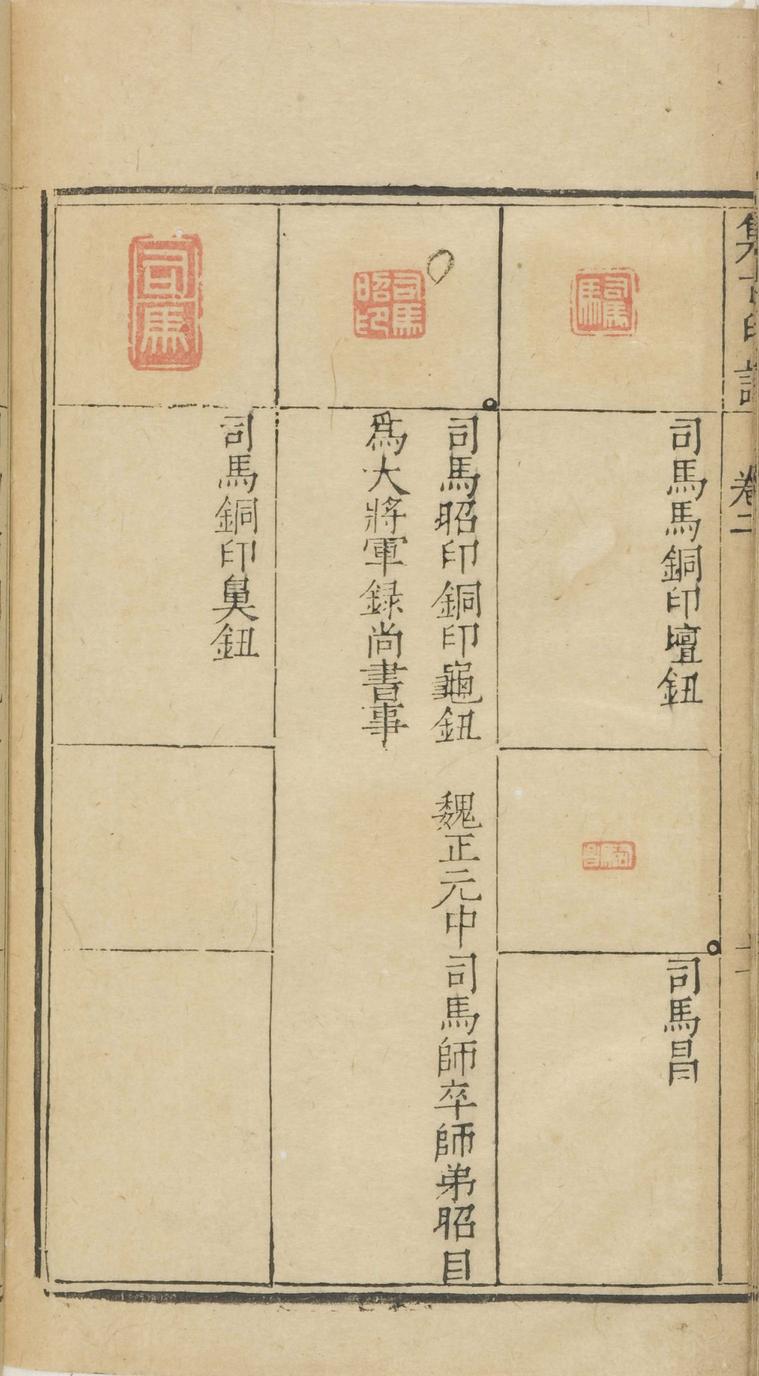 集古印譜 卷二
司馬馬
司馬馬銅印壇鈕
司馬昌
司馬昌
司馬昭印
司馬昭印銅印龜鈕 魏正元中司馬師卒師弟昭目
爲大將軍録尚書事
司馬
司馬銅印鼻鈕